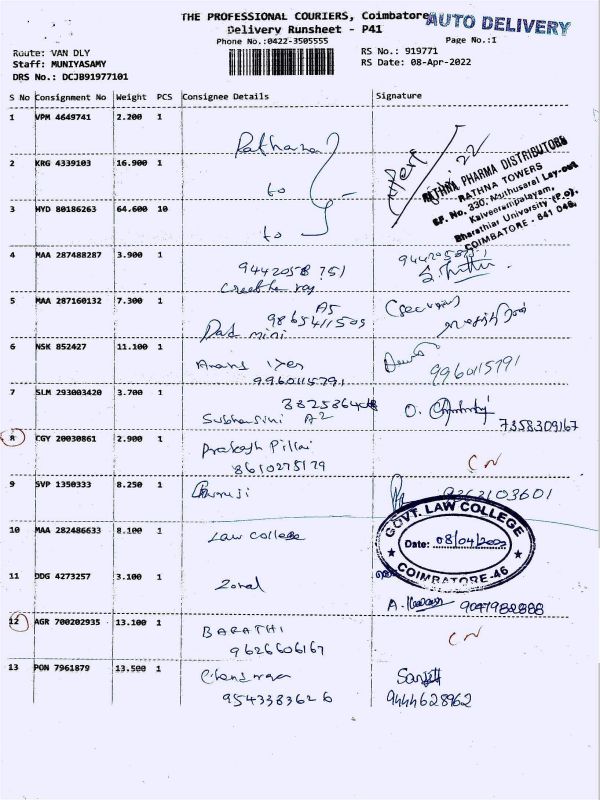 THE PROFESSIONAL COURIERS, Coimbatore
AUTO DELIVERY
Delivery Runsheet - P41
Phone No.:0422-3505555
Page No.:1
Route: VAN DLY
RS No.: 919771
Staff: MUNIYASAMY
RS Date: 08-Apr-2022
DRS No.: DCJB91977101
S No Consignment No Weight PCS Consignee Details Signature
1 VPM 4649741 2.200 1
2 KRG 4339103 16.900 1
to
RATHNA PHARMA DISTRIBUTORS
RATHNA TOWERS
SF. No. 330, Muthusarai Lay-out
Kalveerampalayam,
Bharathiar University (P.O).
COIMBATORE - 641 046.
3 HYD 80186263 64.600 10
to
4 MAA 287488287 3.900 1
9442058751
5 MAA 287160132 7.300 1
A5
9865411505
Dad mini
6 NSK 852427 11.100 1
Anand Iyer
9960115791
9960115791
7 SLM 293003420 3.700 1
Subhasini A2
7358309167
8 CGY 20030861 2.900 1
Prakash Pillai
8610275179
CN
9 SVP 1350333 8.250 1
9363103601
10 MAA 282486633 8.100 1
Law College
GOVT. LAW COLLEGE
Date: 08/04/2022
COIMBATORE-46
11 DDG 4273257 3.100 1
Zonal
9047982888
12 AGR 700202935 13.100 1
BARATHI
9626606167
CN
13 PON 7961879 13.500 1
9543383626
9444628962